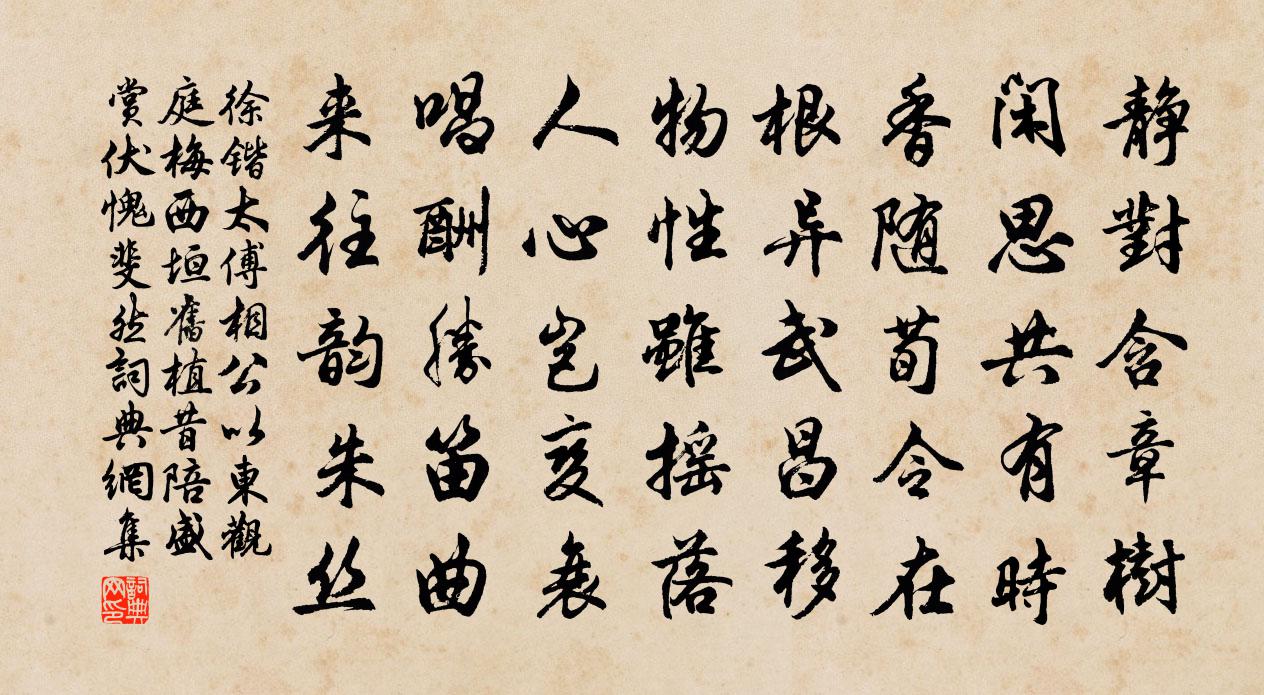 静對含章樹
闲思共有時
香随荀令在
根异武昌移
物性雖摇落
人心岂变衰
唱酬勝笛曲
来往韵朱丝
徐锴太傅相公以東觀
庭梅西垣舊植昔陪盛
赏伏愧斐然詞典網集
詞典网印